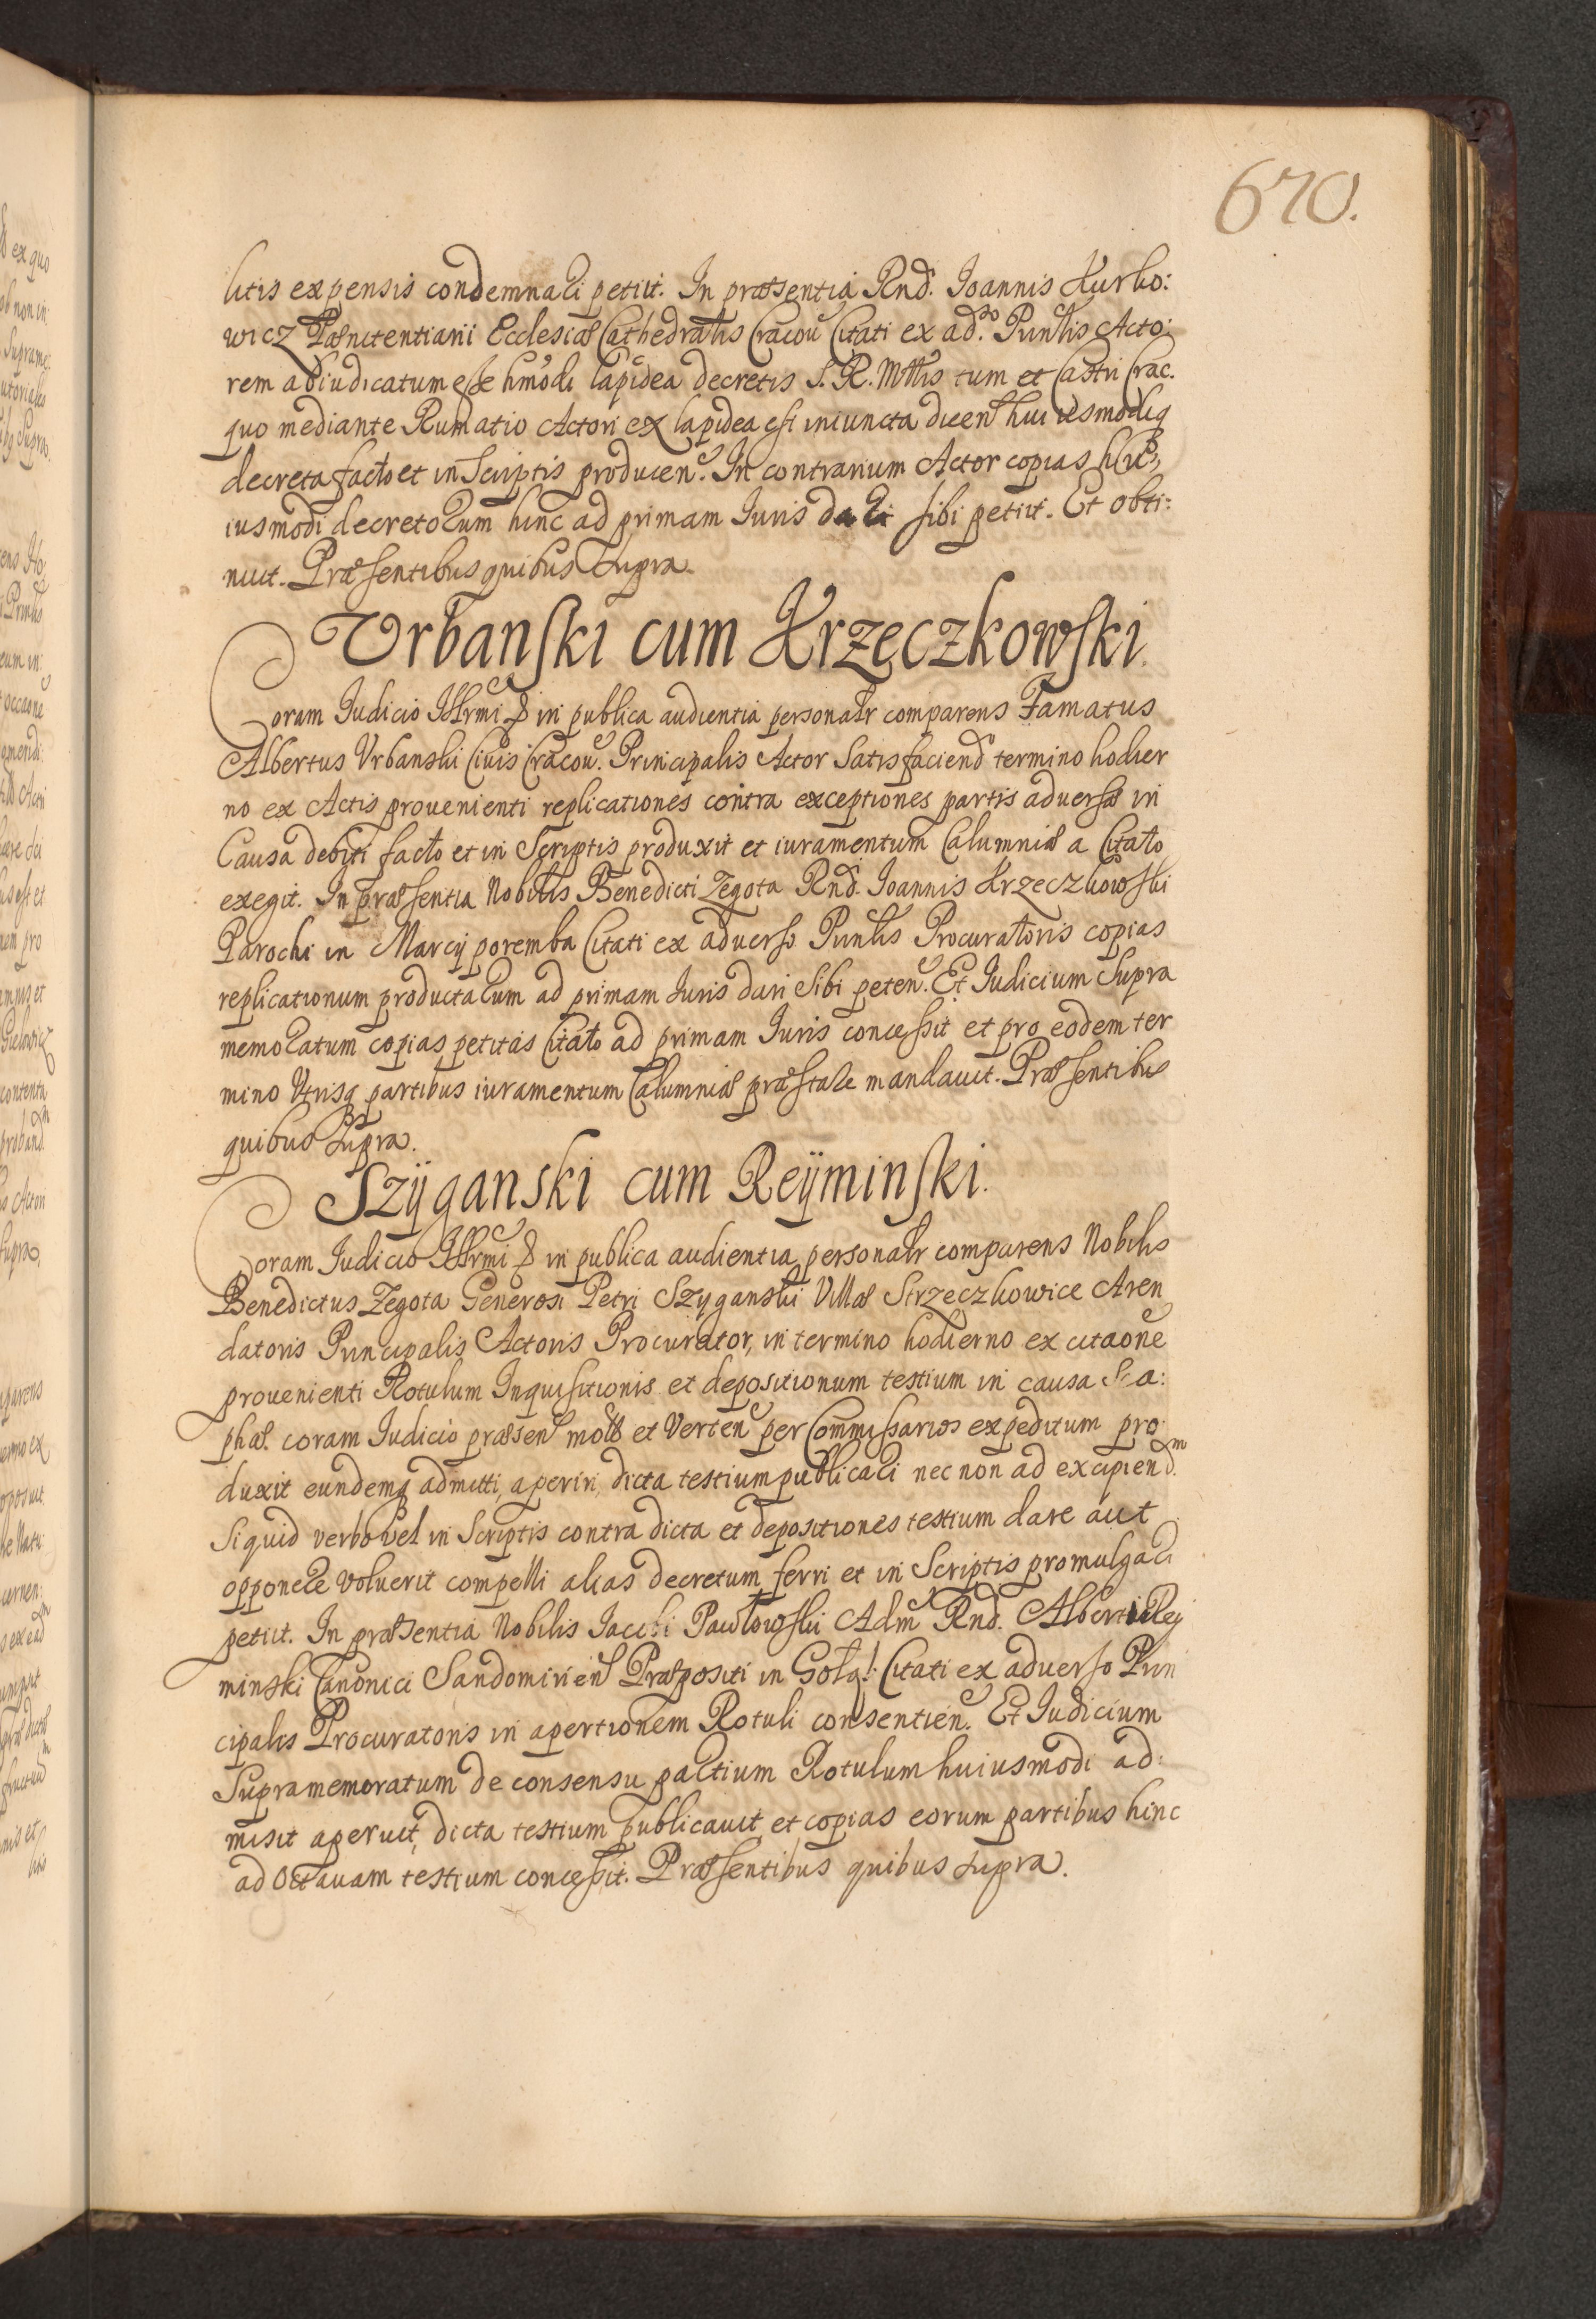 670.
litis expensis condemnari petiit. In præsentia Rnd. Ioannis Kurko:
wicz Pænitentiarii Ecclesiæ Cathedralis Cracou Citati ex ad.so Punlis Acto:
rem abiudicatum esse hmodi lapidea decretis S. R. Mttis tum et Castri Crac.
quo mediante Rumatio Actori ex lapidea est iniuncta dicen huiusmodiq
decreta facto et in Scriptis producen. In contrarium Actor copias hu
iusmodi decretorum hinc ad primam Iuris dari sibi petiit. Et obti:
nuit. Præsentibus quibus Supra.
Vrbanski cum Krzeczkowski.
Coram Iudicio Illrmi & in publica audientia personalr comparens Famatus
Albertus Vrbanski Ciuis Cracou. Principalis Actor Satisfaciend termino hodier
no ex Actis prouenienti replicationes contra exceptiones partis aduersæ in
Causa debiti facto et in Scriptis produxit et iuramentum Calumniæ a Citato
exegit. In præsentia Nobilis Benedicti Zegota Rnd. Ioannis Krzeczkowski
Parochi in Marcÿ poremba Citati ex aduerso Punlis Procuratoris copias
replicationum productarum ad primam Iuris dari Sibi peten. Et Iudicium Supra
memoratum copias petitas Citato ad primam Iuris concessit et pro eodem ter
mino Vtrisq partibus iuramentum Calumniæ præstare mandauit. Præsentibus
quibus Supra.
Szÿganski cum Reÿminski.
Coram Iudicio Illrmi & in publica audientia personalr comparens Nobilis
Benedictus Zegota Generosi Petri Szyganski Villæ Strzeczkowice Aren
datoris Principalis Actoris Procurator, in termino hodierno ex citaone
prouenienti Rotulum Inquisitionis et depositionum testium in causa
phæ. coram Iudicio præsen mota et Verten per Commissarios expeditum pro:
duxit eundemq admitti, aperiri, dicta testium publicari nec non ad excipiend.m
Siquid verbo vel in Scriptis contra dicta et depositiones testium dare aut
opponere voluerit compelli alias decretum ferri et in Scriptis promulgari
petiit. In præsentia Nobilis Iacobi Pawlowski Adm Rnd. Alberti Rey
minski Canonici Sandomirien Præpositi in Citati ex aduerso Prin
cipalis Procuratoris in apertionem Rotuli consentien. Et Iudicium
Supramemoratum de consensu partium Rotulum huiusmodi ad:
misit aperuit, dicta testium publicauit et copias eorum partibus hinc
ad Octauam testium concessit. Præsentibus quibus Supra.